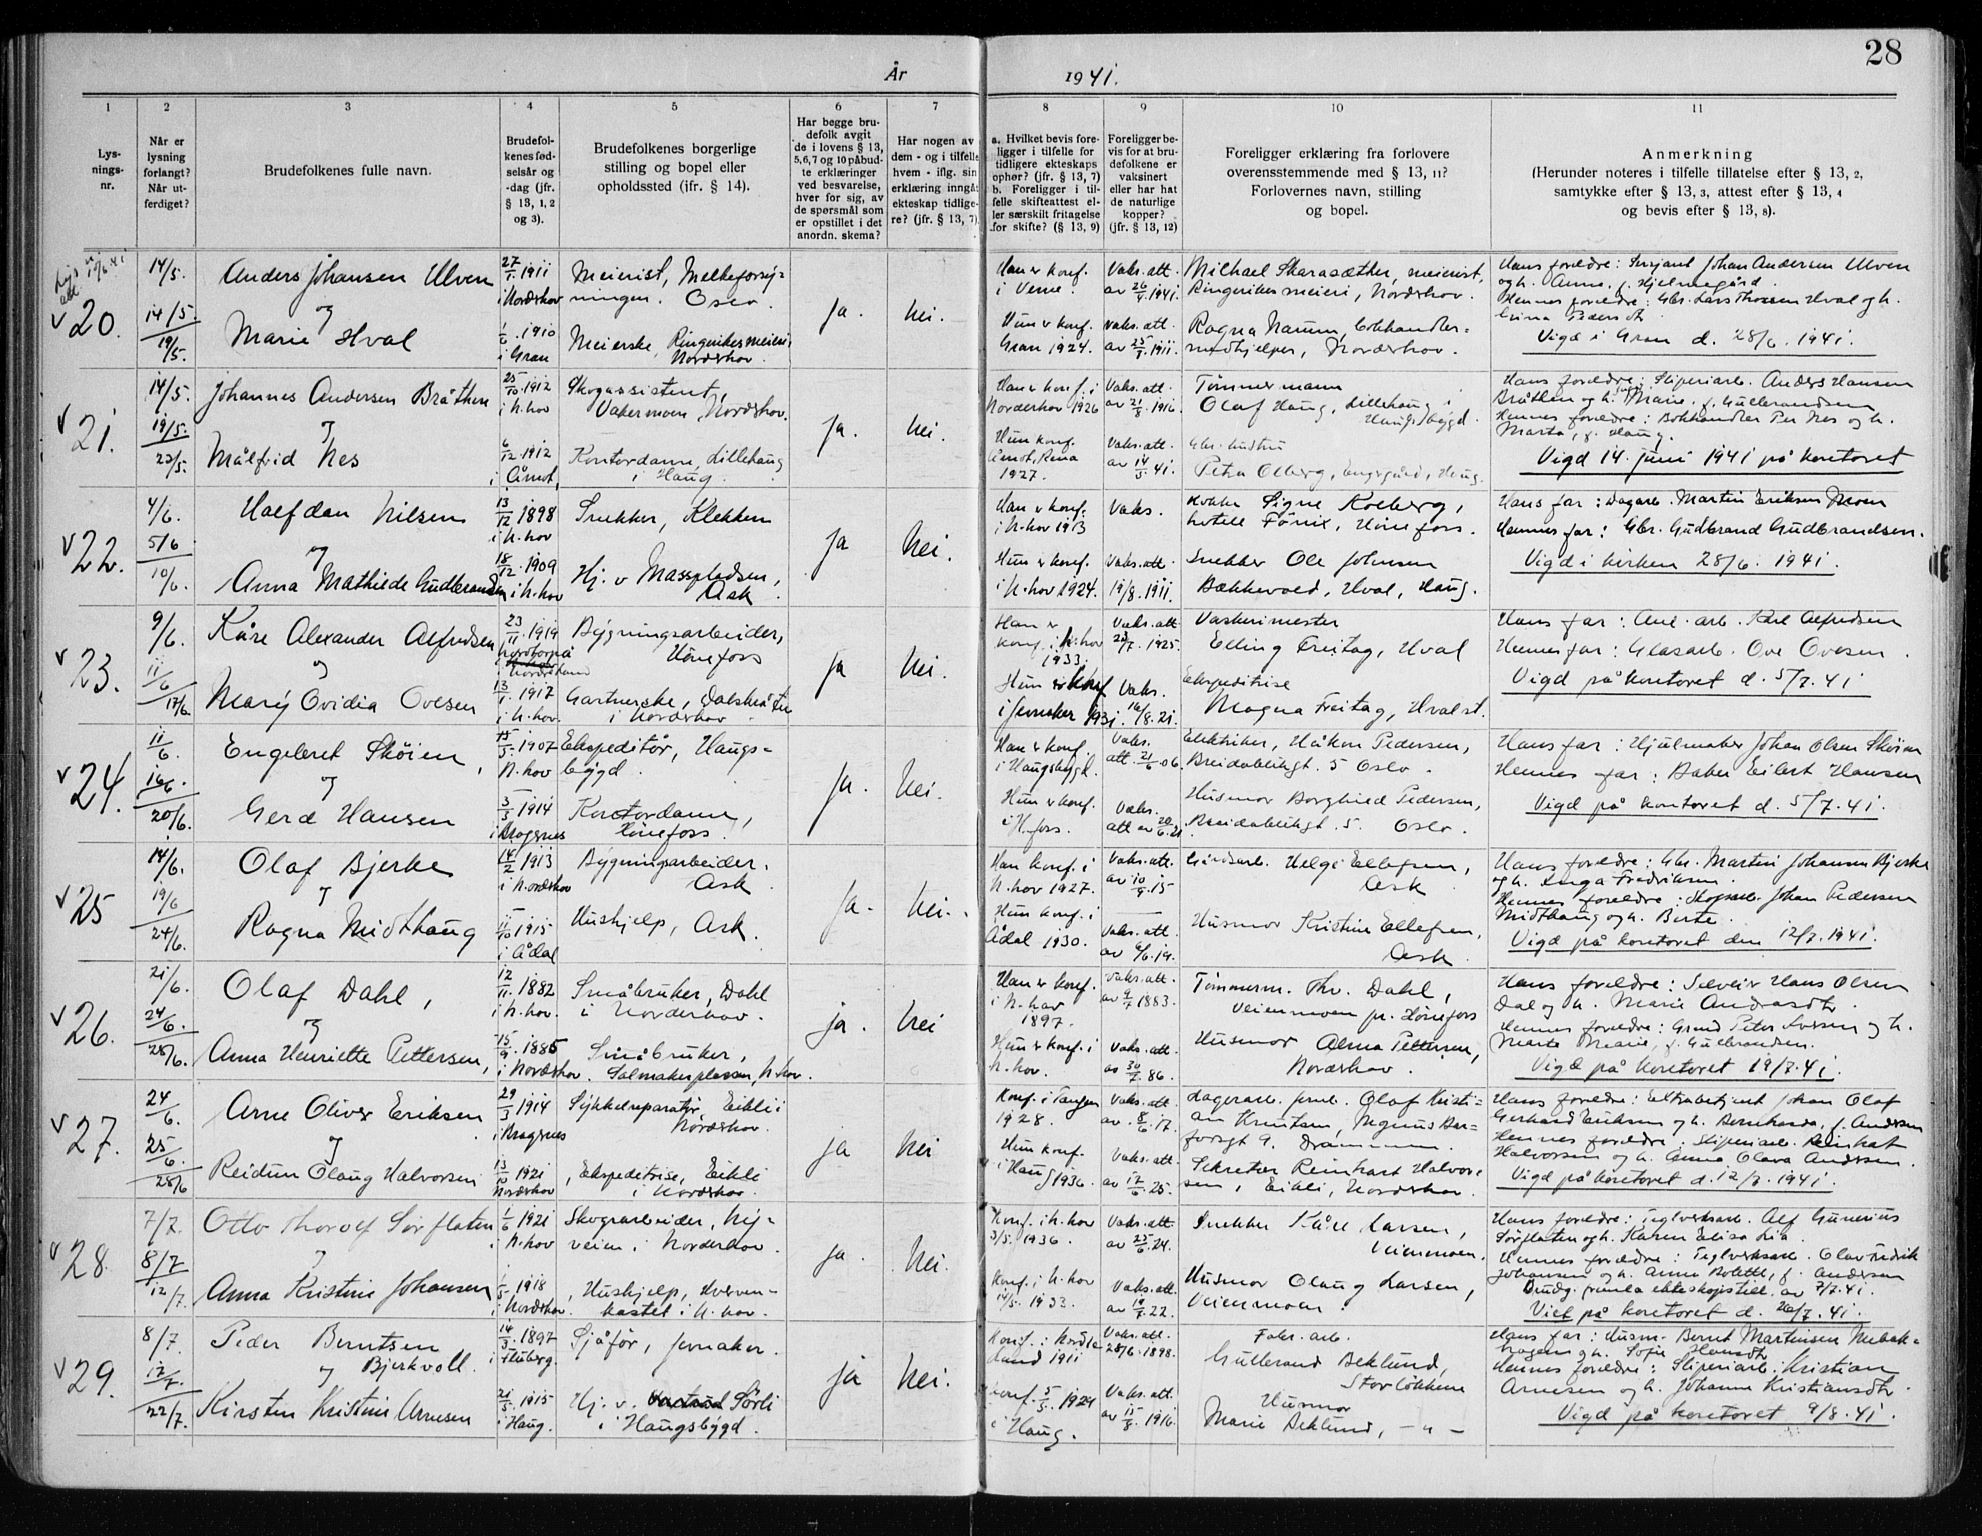 28
År 1941.
1 2 3 4 5 6 7 8 9 10 11
Lys-
nings-
nr.
Når er
lysning
forlangt?
Når ut-
ferdiget?
Brudefolkenes fulle navn.
Brudefol-
kenes fød-
selsår og
-dag (jfr.
§ 13, 1, 2
og 3).
Brudefolkenes borgerlige
stilling og bopel eller
opholdssted (jfr. § 14).
Har begge bru-
defolk avgit
de i lovens § 13,
5, 6, 7 og 10 påbud-
te erklæringer
ved besvarelse,
hver for sig, av
de spørsmål som
er opstillet i det
anordn. skema?
Har nogen av
dem - og i tilfelle
hvem - iflg. sin
erklæring inngått
ekteskap tidlige-
re? (jfr. § 13, 7).
a. Hvilket bevis fore-
ligger i tilfelle for
tidligere ekteskaps
ophør? (jfr. § 13, 7)
b. Foreligger i til-
felle skifteattest el-
ler særskilt fritagelse
for skifte? (§ 13, 9)
Foreligger be-
vis for at bru-
defolkene er
vaksinert
eller har hat
de naturlige
kopper?
(jfr. § 13, 12)
Foreligger erklæring fra forlovere
overensstemmende med § 13, 11?
Forlovernes navn, stilling
og bopel.
Anmerkning
(Herunder noteres i tilfelle tillatelse efter § 13, 2,
samtykke efter § 13, 3, attest efter § 13, 4
og bevis efter § 13, 8).
v 20.
14/5.
14/5.
19/5.
Anders Johansen Ulven
og
Marie Hval
27/1. 1911
i Norderhov
1/6. 1910
i Gran
Meierist, Melkeforsy-
ningen. Oslo.
Meierske, Ringerikes meieri,
Norderhov.
Ja.
Nei.
Han er konf.
i Verne.
Hun er konf.
Gran 1924.
Vaks. att.
av 26/4 1941.
Vaks. att.
av 25/9. 1911.
Michael Skarasæther, meierist,
Ringerikes meieri, Norderhov.
Ragna Hamm, bokhandler=
medhjelper, Norderhov.
Hans foreldre: Sersjant Johan Andersen Ulven
og h. Anne, f. Hjelmegård.
Hennes foreldre: Gbr. Lars Thorsen Hval og h.
Vigd i Gran d. 28/6. 1941.
v 21.
14/5.
19/5.
23/5.
Johannes Andersen Bråthen
og
Målfrid Nes
25/10. 1912
i N.hov
6/12. 1912
i Åmot.
Skogassistent,
Vakermoen, Norderhov.
Kontordame, Lillehaug
i Haug.
Ja.
Nei.
Han er konf. i
Norderhov 1926
Hun konf.
Åmot, Rena
1927.
Vaks. att.
av 21/8. 1916.
Vaks. att.
av 14/5 41.
Tømmermann
Olaf Haug, Lillehaug i
Haugsbygd.
Gbr. hustru
Petra Olberg, Engegård, Haug.
Hans foreldre: Sliperiarb. Anders Hansen
Bråthen og h. Marie f. Gulbrandsen
Hennes foreldre: Bokhandler Per Nes og h.
Marta, f. Haug.
Vigd 14. juni 1941 på kontoret
v 22.
4/6.
5/6
10/6.
Halfdan Nilsen
og
Anna Mathilde Gudbrandsen
13/12 1898
i N.hov
18/12. 1909
i N.hov
Snekker, Klekken
Hj. v Masspladsen,
Ask
Ja
Nei.
Han er konf.
i N.hov 1913
Hun er konf.
i N.hov 1924.
Vaks.
Vaks. att.
19/8. 1911.
Kokke Signe Kolberg,
hotell Fønix, Hønefoss.
Snekker Ole Johnsen
Bækkevold, Hval, Haug.
Hans far: Dagarb. Martin Eriksen Moen
Hennes far: Gbr. Gudbrand Gudbrandsen.
Vigd i kirken 28/6. 1941.
v 23.
9/6.
11/6
17/6.
Kåre Alexander Alfredsen
og
Mary Ovidia Ovesen
23/11. 1919
13/1. 1917
i N.hov.
Bygningsarbeider,
Hønefoss
Gartnerske,
i Norderhov.
Ja
Nei.
Han er
konf. i N.hov
1933.
Hun er konf
i Jevnaker 1931.
Vaks. att.
23/7. 1925.
Vaks.
16/8. 21.
Vaskerimester
Elling Freitag, Hval
Ekspeditrise
Magna Freitag, Hval st.
Hans far: Anl. arb. Karl Alfredsen
Hennes far: Glasarb. Ove Ovesen.
Vigd på kontoret d. 5/7. 41
v 24.
11/6.
16/6.
20/6.
Engebret Skøien,
og
Gerd Hansen
15/5. 1907
N.hov
3/3 1914
i Bragernes
Ekspeditør, Haugs=
bygd.
Kontordame,
Hønefoss.
Ja.
Nei.
Han er konf.
i Haugsbygd.
Hun er konf.
i H.foss.
Vaks.
att. 21/6. 06.
Vaks.
att av 20/6. 21
Elektriker, Håkon Pedersen,
Breidablikgt. 5 Oslo.
Husmor Borghild Pedersen,
Breidablikgt. 5. Oslo.
Hans far: Hjulmaker Johan Olsen Skøien
Hennes far: Baker Eilert Hansen
Vigd på kontoret d. 5/7. 41.
v 25
14/6.
19/6
24/6.
Olaf Bjerke
og
Ragna Midthaug
14/2 1913
i Norderhov
11/10 1915
i Ådal
Bygningsarbeider.
Ask
Hushjelp, Ask.
Ja.
Nei.
Han konf. i
N.hov 1927.
Hun konf. i
Ådal 1930.
Vaks. att.
av 10/9. 15
Vaks. att.
av 6/6. 19.
Gårdsarb. Helge Ellefsen,
Ask
Husmor Kristine Ellefsen,
Ask
Hans foreldre: Gbr. Martin Johansen Bjerke
og h. Inga Fredriksen.
Hennes foreldre: Skogsarb. Johan Pedersen
Midthaug og h. Berte.
Vigd på kontoret den 12/7. 1941.
v 26.
21/6.
24/6.
28/6.
Olaf Dahl,
og
Anna Henriette Pettersen,
12/11. 1882
i N.hov.
15/9. 1885
i Norderhov.
Småbruker, Dahl
i Norderhov.
Småbruker,
Salmakerplassen, N.hov.
ja.
Nei
Han er konf.
i N.hov
1897.
Hun er konf. i
N.hov.
Vaks. att.
av 9/7 1883.
Vaks. att.
av 30/7. 86.
Tømmerm. Thv. Dahl,
Veienmoen pr. Hønefoss
Husmor Alma Pettersen,
Norderhov.
Hans foreldre: Selveier Hans Olsen
Dal og h. Marie Andersdtr.
Hennes foreldre: Grund Peter Iversen og h.
Marte Marie, f. Gulbrandsen.
Vigd på kontoret 19/7. 41.
v 27.
24/6.
25/6.
28/6
Arne Oliver Eriksen
og
Reidun Olaug Halvorsen
29/3 1914
i Bragernes
13/10 1921
Norderhov
Sykkelreparatør, Eikli i
Norderhov.
, Ekspeditrise, Eikli
i Norderhov.
ja
Nei
Konf. i Tangen
1928.
Hun konf.
i Haug 1936.
Vaks. att.
av. 8/6. 17.
Vaks. att.
av 17/6. 25.
Lagerarb. Olaf Kristi-
an Knutsen, Magnus Bar=
forsgt 9. Drammen.
Sekretær Reinhart Halvor=
sen, Eikli, Norderhov.
Hans foreldre: Ekstrabetjent Johan Olaf
Gerhard Eriksen og h. Bernharda, f. Andersen
Hennes foreldre: Sliperiarb. Reinhart
Halvorsen og h. Anna Olava Andersen.
Vigd på kontoret d. 12/7. 1941.
v 28.
7/7.
8/7
12/7.
Otto Thorolf Sørflaten
og
Anna Kristine Johansen,
1/6 1921
i N.hov
1918
i Norderhov.
Skogsarbeider, Ny=
veien i Norderhov.
, Hushjelp, Hverven=
kastet i N.hov.
ja.
Nei.
Konf. i N.hov
3/5. 1936.
Konf. i N.hov
14/5. 1933.
Vaks. att.
av 25/6. 24.
Vaks. att.
av 19/8. 22.
Snekker Kåre Larsen,
Veienmoen.
Husmor Olaug Larsen,
Veienmoen.
Hans foreldre: Teglverksarb. Alf Gunerius
Sørflaten og h. Karen Elisa Lik.
Hennes foreldre: Teglverksarb. Olav Fredrik
Johansen og h. Anna Bolette, f. Andersen
Viet på kontoret d. 26/7. 41.
v 29.
8/7.
12/7.
22/7.
Peder Berntsen
og Bjerkvoll.
Kirsten Kristine Arnesen
14/3. 1897
i Flesberg.
21/5. 1915
i Haug.
Sjåfør, Jevnaker.
Hj. v. Sørli
i Haugsbygd.
ja
Nei.
Konf. i Norde
land 1911
Konf. 5/5. 1929
i Haug.
Vaks. att.
28/6. 1898.
Vaks. att.
av 15/8. 1916.
Fabr. arb.
Gulbrand Beklund,
Storløkken
Husmor
Marie Beklund, - " -
Hans far: Husm. Bernt Martinsen
hagen og h. Sofie Hansdtr
Hennes foreldre: Sliperiarb. Kristian
Arnesen og h. Johanne Kristiansdtr.
Vigd på kontoret 9/8. 41.